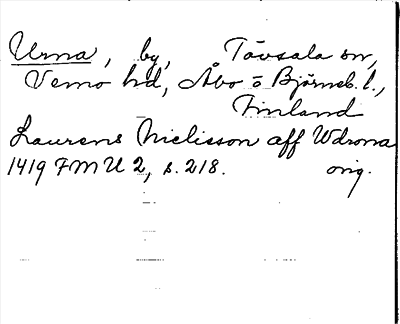 Urna, by, Tövsala sn,
Vemo hd, Åbo o Björneb. l.,
Finland
Laurens Nielisson aff Wdrona
1419 FMU 2, s. 218. orig.